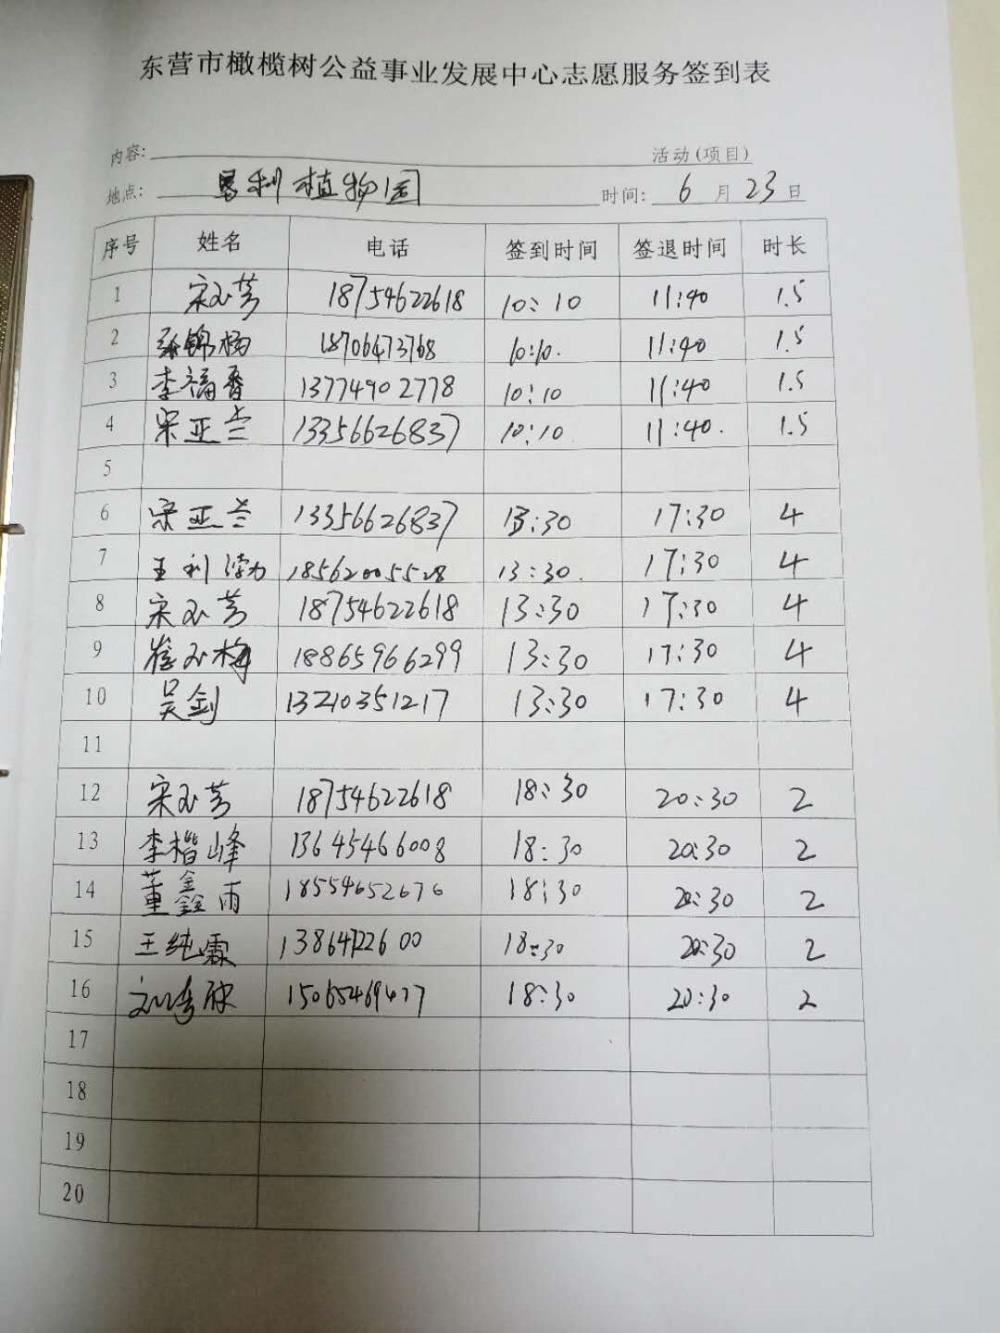 东营市橄榄树公益事业发展中心志愿服务签到表
内容: 活动(项目)
地点: 垦利植物园 时间: 6月23日
序号 姓名 电话 签到时间 签退时间 时长
1 宋玉芳 18754622618 10:10 11:40 1.5
2 张锦杨 18706473768 10:10. 11:40 1.5
3 李福香 13774902778 10:10 11:40 1.5
4 宋亚兰 13356626837 10:10 11:40. 1.5
5
6 宋亚兰 13356626837 13:30 17:30 4
7 王利 18562005528 13:30. 17:30 4
8 宋玉芳 18754622618 13:30 17:30 4
9 崔玉梅 18865966299 13:30 17:30 4
10 吴剑 13210351217 13:30 17:30 4
11
12 宋玉芳 18754622618 18:30 20:30 2
13 李楷峰 13645466008 18:30 20:30 2
14 董鑫雨 18554652676 18:30 20:30 2
15 王纯霖 18:30 20:30 2
16 18:30 20:30 2
17
18
19
20